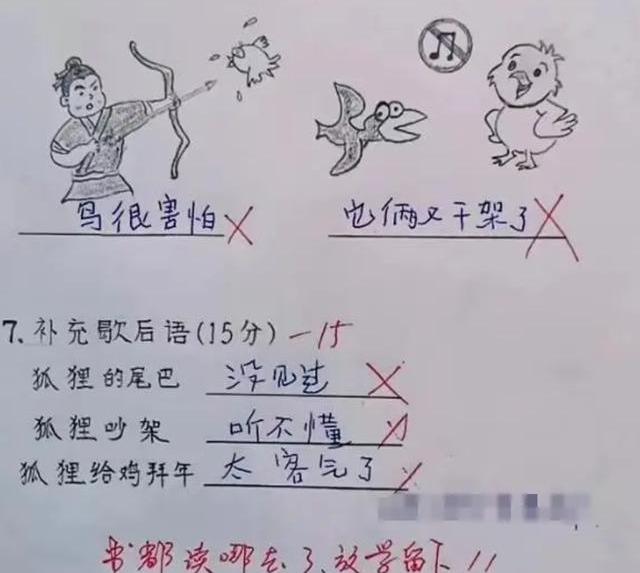 鸟很害怕
它俩又干架了
7.补充歇后语(15分) -15
狐狸的尾巴 没见过
狐狸吵架 听不懂
狐狸给鸡拜年 太客气了
书都读哪去了,放学留下!!